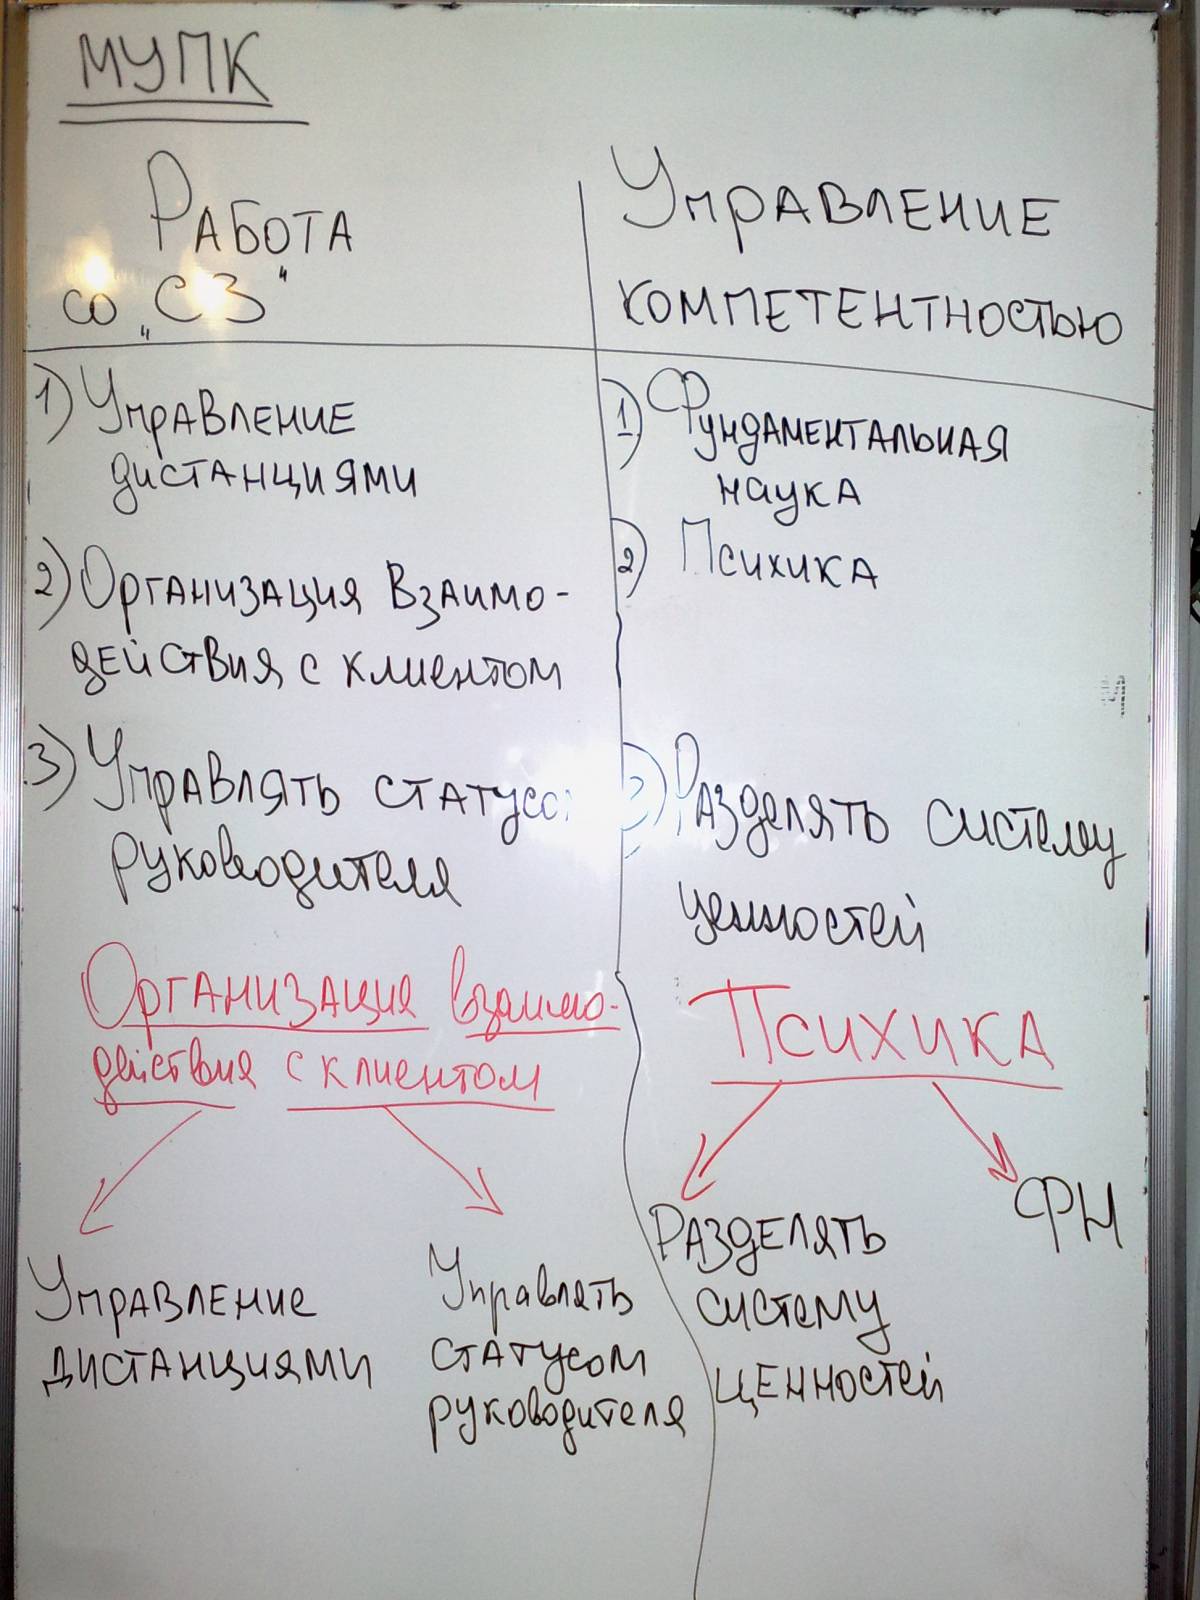 МУПК
Работа
со „СЗ"
1) Управление
дистанциями
2) Организация взаимо-
действия с клиентом
3) Управлять
руководителя
Организация взаимо-
действия с клиентом
Управление
дистанциями
Управлять
статусом
руководителя
Управление
компетентностью
1) Фундаментальная
наука
2) Психика
Разделять систему
ценностей
Психика
Разделять
систему
ценностей
ФН